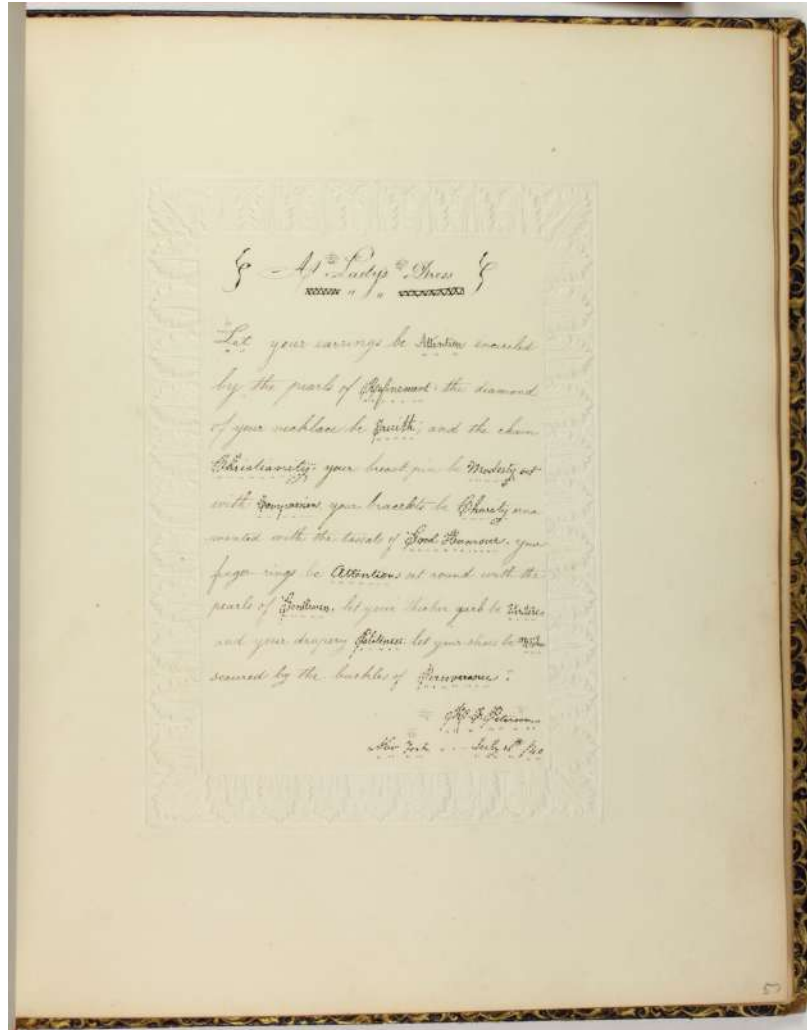 A Lady's Dress
Let your earrings be Attention encircled
by the pearls of Refinement: the diamond
of your necklace be Truth, and the chain
Christianity; your breast pin be Modesty set
with Compassion, your bracelets be Charity orna
mented with the tassels of Good Humour, your
finger rings be Attention set round with the
pearls of let your thicker garb be Virtue
and your drapery Politeness: let your shoes be
secured by the buckles of Perseverance.
Peterson
New York July 1840
57